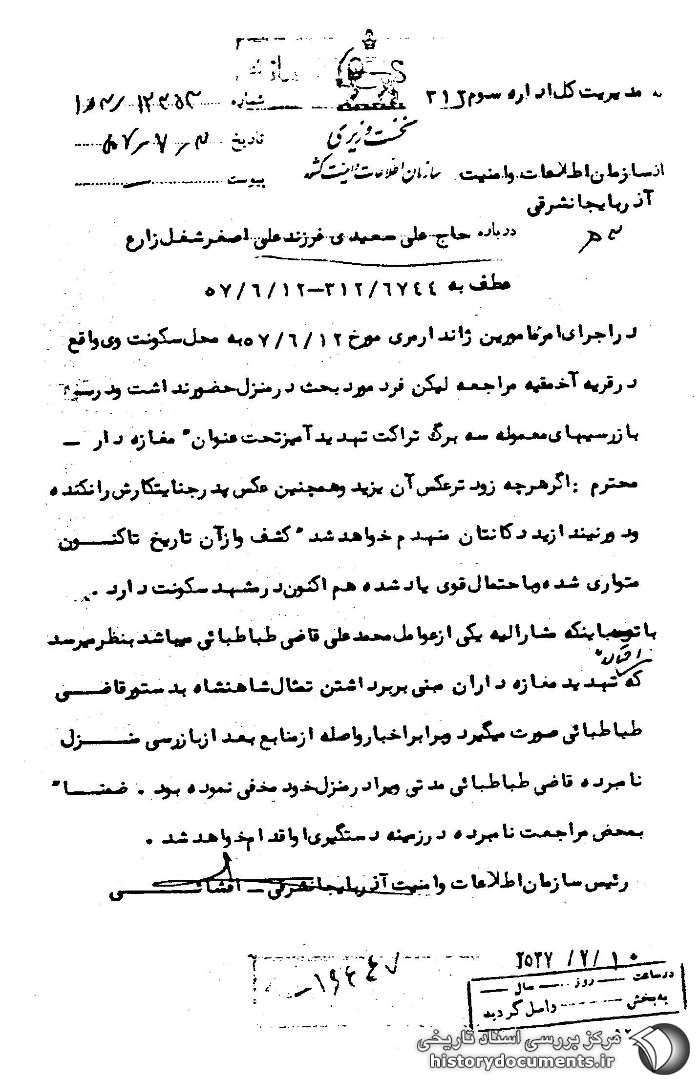 به مدیریت کل اداره سوم ۳۱۲
شماره ۱۲۴۵۳
تاریخ
نخست وزیری
پیوست
از سازمان اطلاعات و امنیت
سازمان اطلاعات و امنیت کشور
آذربایجانشرقی
درباره حاج علی سعیدی فرزند علی اصغر شغل زارع
عطف به ۳۱۲/۶۷۴۴–۵۷/۶/۱۲
در اجرای امر مامورین ژاندارمری مورخ ۵۷/۶/۱۲ به محل سکونت وی واقع
در قریه آخمقیه مراجعه لیکن فرد مورد بحث در منزل حضور نداشت ودر
بازرسیهای معموله سه برگ تراکت تهدید آمیز تحت عنوان " مغازه دار –
محترم : اگر هرچه زودتر عکس آن یزید وهمچنین عکس پدر جنایتکارش را نکنده
ودور نیندازید دکانتان منهدم خواهد شد " کشف واز آن تاریخ تاکنون
متواری شده وباحتمال قوی یاد شده هم اکنون در مشهد سکونت دارد .
با توجه باینکه مشارالیه یکی از عوامل محمد علی قاضی طباطبائی میباشد بنظر میرسد
که تهدید مغازه داران مبنی بر برداشتن تمثال شاهنشاه بدستور قاضی
طباطبائی صورت میگیرد وبرابر اخبار واصله از منابع بعد از بازرسی منزل
نامبرده قاضی طباطبائی مدتی ویرا در منزل خود مخفی نموده بود . ضمنا "
بمحض مراجعت نامبرده در زمینه دستگیری او اقدام خواهد شد .
رئیس سازمان اطلاعات وامنیت آذربایجانشرقی – افشائی
۲۵۳۷/۷/۱۰
۱۹۴۴۷
در ساعت روز سال
به بخش واصل گردید
مرکز بررسی اسناد تاریخی
historydocuments.ir